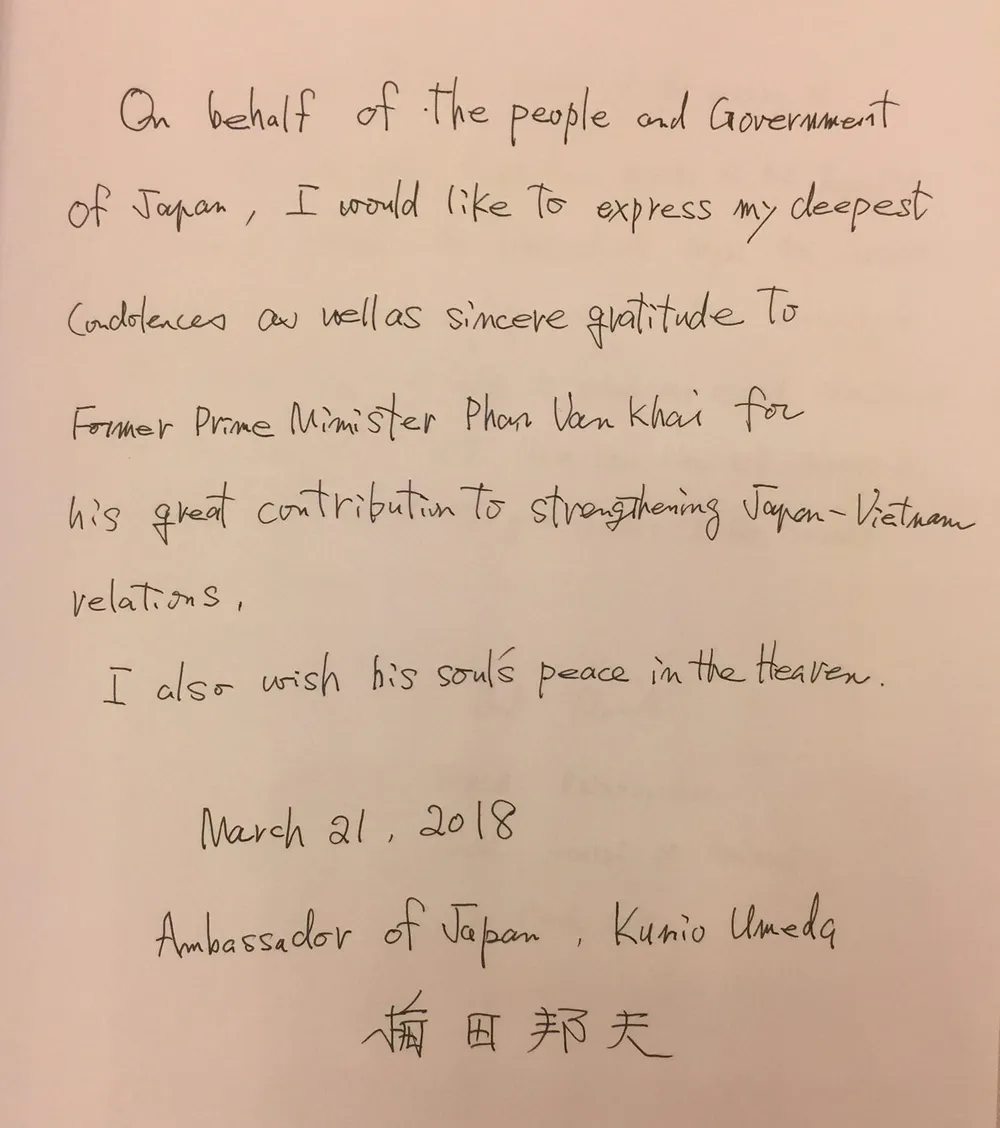 On behalf of the people and Government
of Japan, I would like to express my deepest
Condolences as well as sincere gratitude to
Former Prime Minister Phan Van Khai for
his great contribution to strengthening Japan-Vietnam
relations,
I also wish his soul's peace in the Heaven.
March 21, 2018
Ambassador of Japan, Kunio Umeda
梅田邦夫